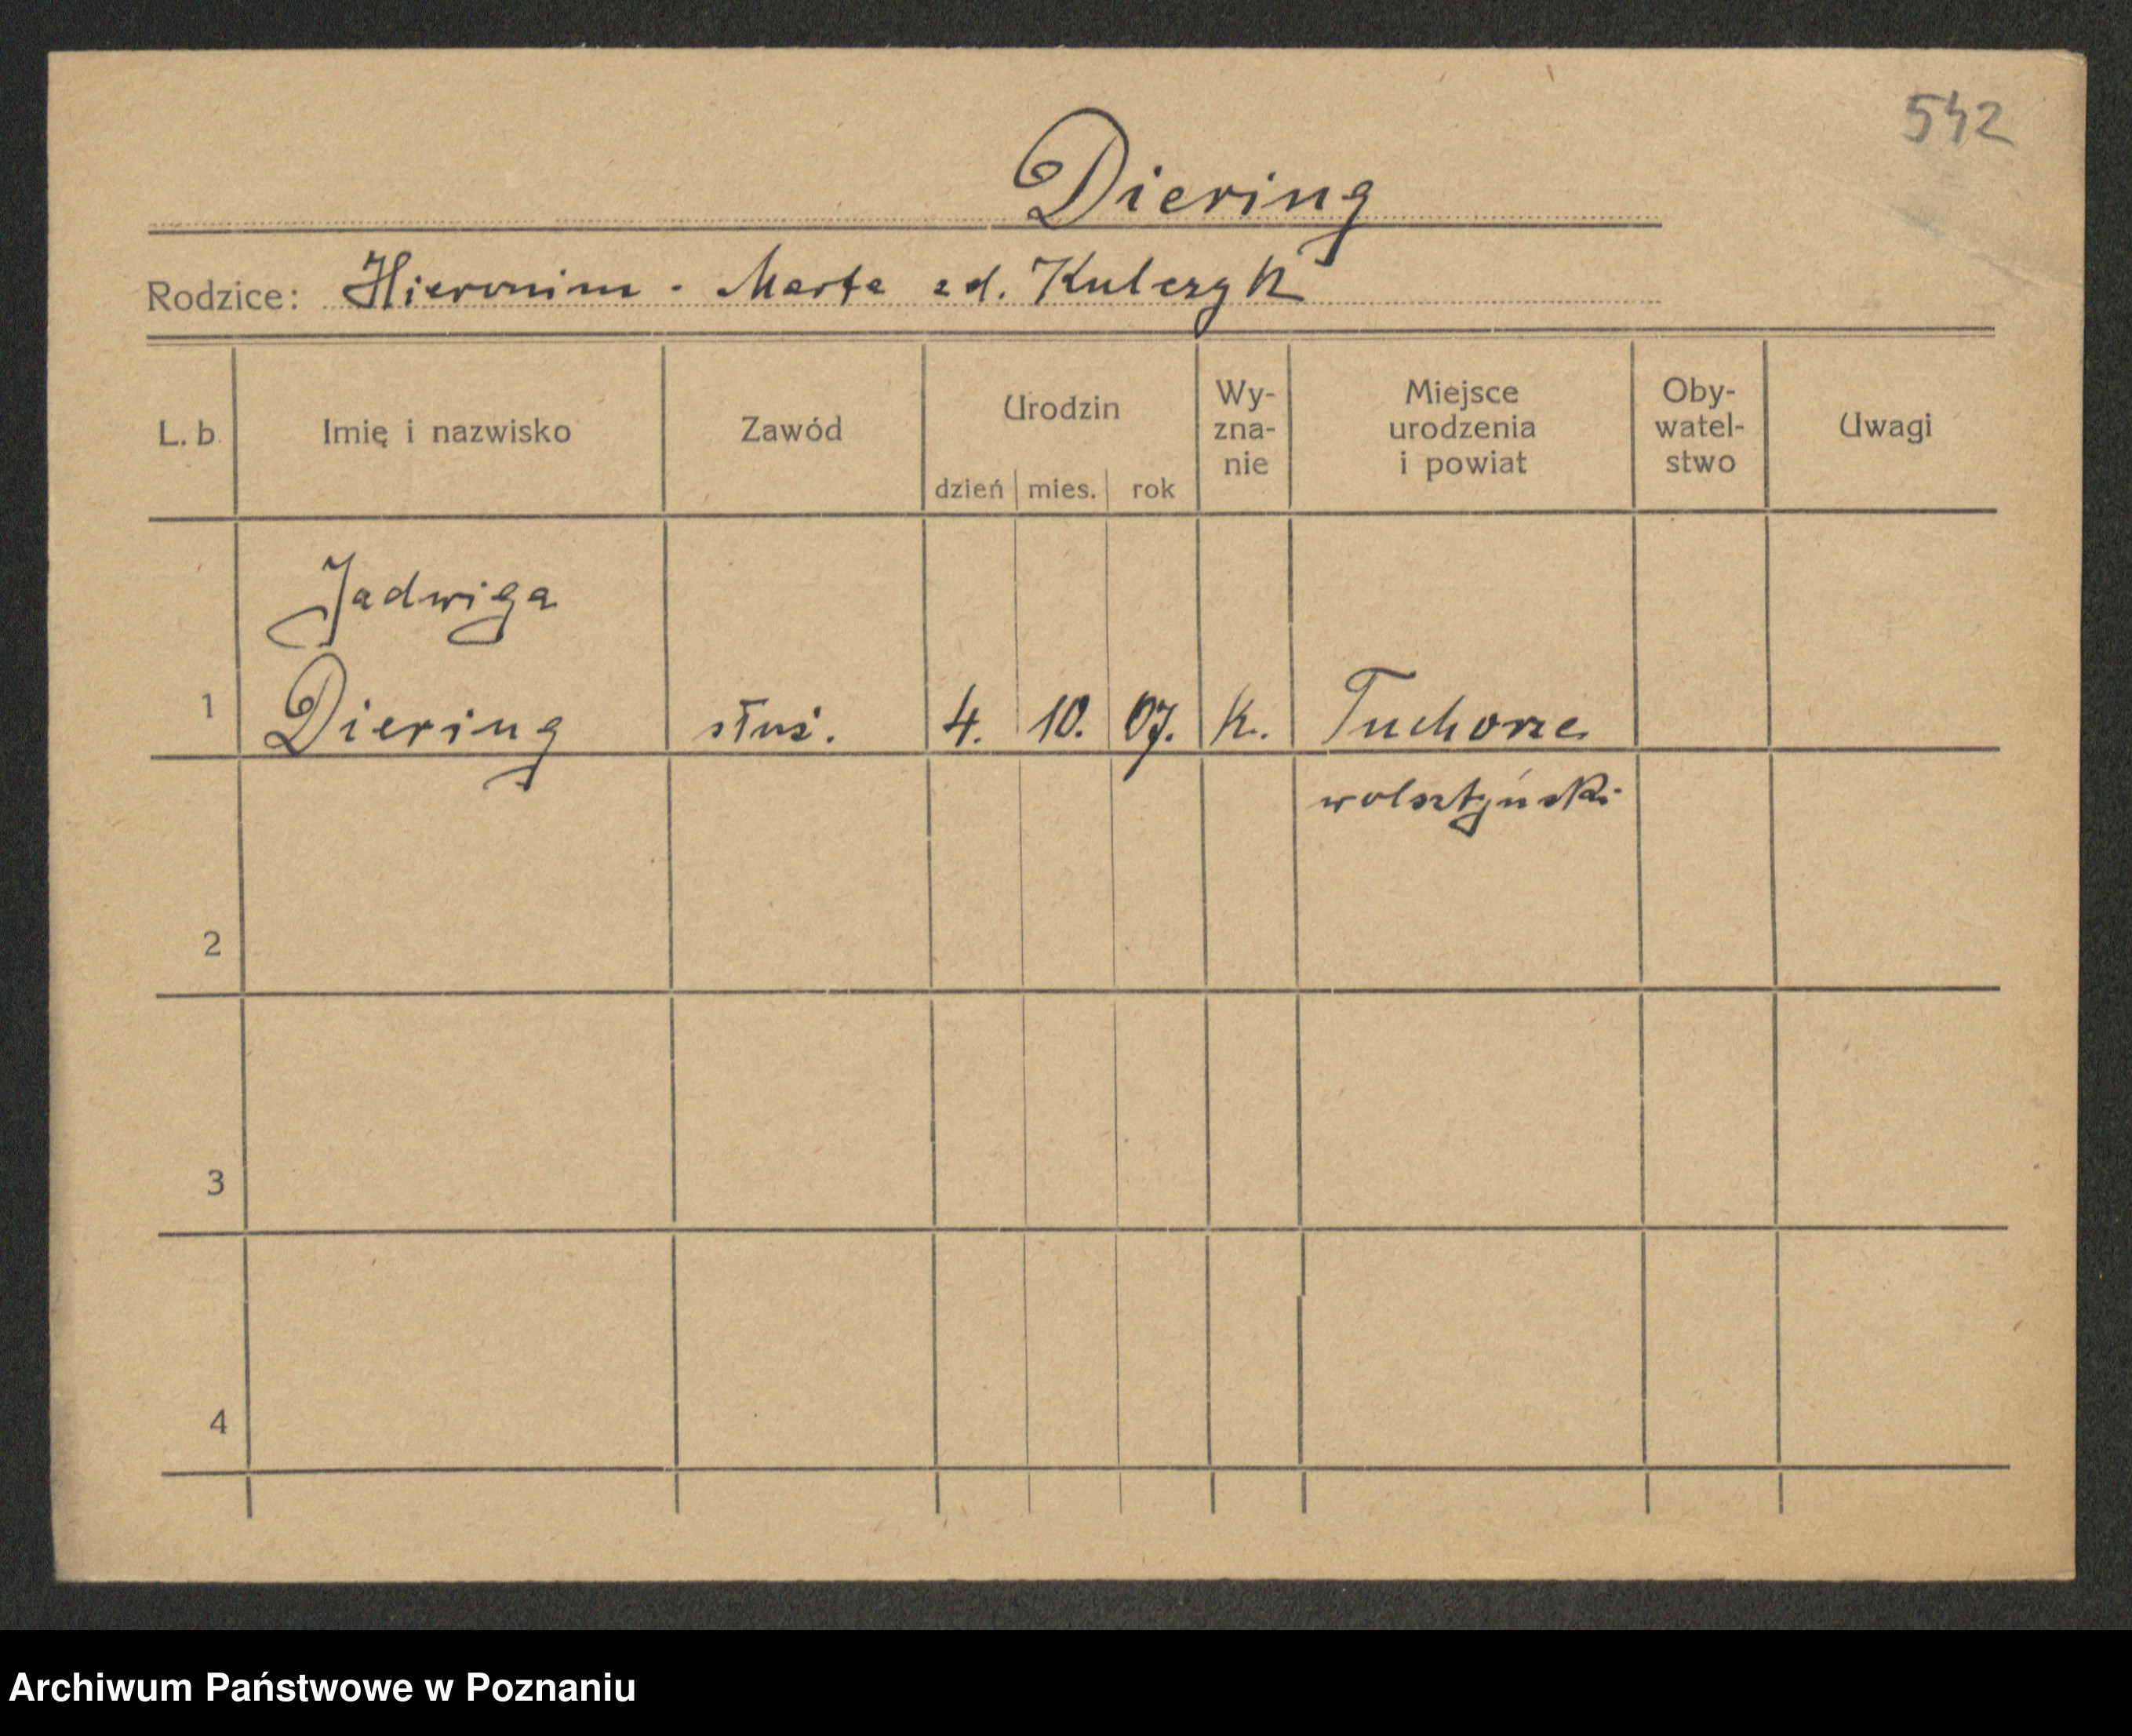 542
Diering
Rodzice: Hieronim - Marta zd. Kulczyk
L. b. Imię i nazwisko Zawód Urodzin dzień mies. rok Wy-zna-nie Miejsce urodzenia i powiat Oby-watel-stwo Uwagi
Jadwiga
1 Diering służ. 4. 10. 07. k. Tuchorze
wolsztyński
2
3
4
Archiwum Państwowe w Poznaniu